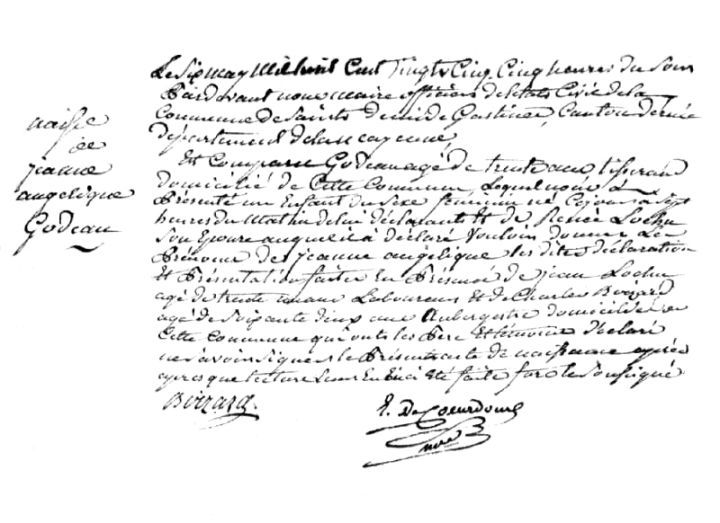 naisse
de
jeanne
angelique
Godeau
Le Six may Mil huit Cent Vingt Cinq Cinq heures du Soir
Pardevant nous maire officier de letat Civil de la
Commune de Saint Denis de Gastines, Canton dernée
département de la mayenne
Est Comparu Godeau agé de trente ans tisserand
domicilié de Cette Commune, Lequel nous à
Présenté un Enfant du Sexe féminin né Cejour à Sept
heures du Matin de lui déclarant Et de Renée Lochu
Son Epouse auquel il à déclaré Vouloir donner Le
Prénom de jeanne angélique les dites déclaration
Et Présentation faites En Présence de jean Lochu
agé de trente ans Laboureur Et de Charles Boizard
agé de Soixante deux ans Aubergiste domiciliés en
Cette Commune qui ont les Père Et témoins déclaré
ne Savoir Signer le Présent acte de naissance après
après que lecture Leur En Eté faite fors le Soussigné
Boizard.
E. De